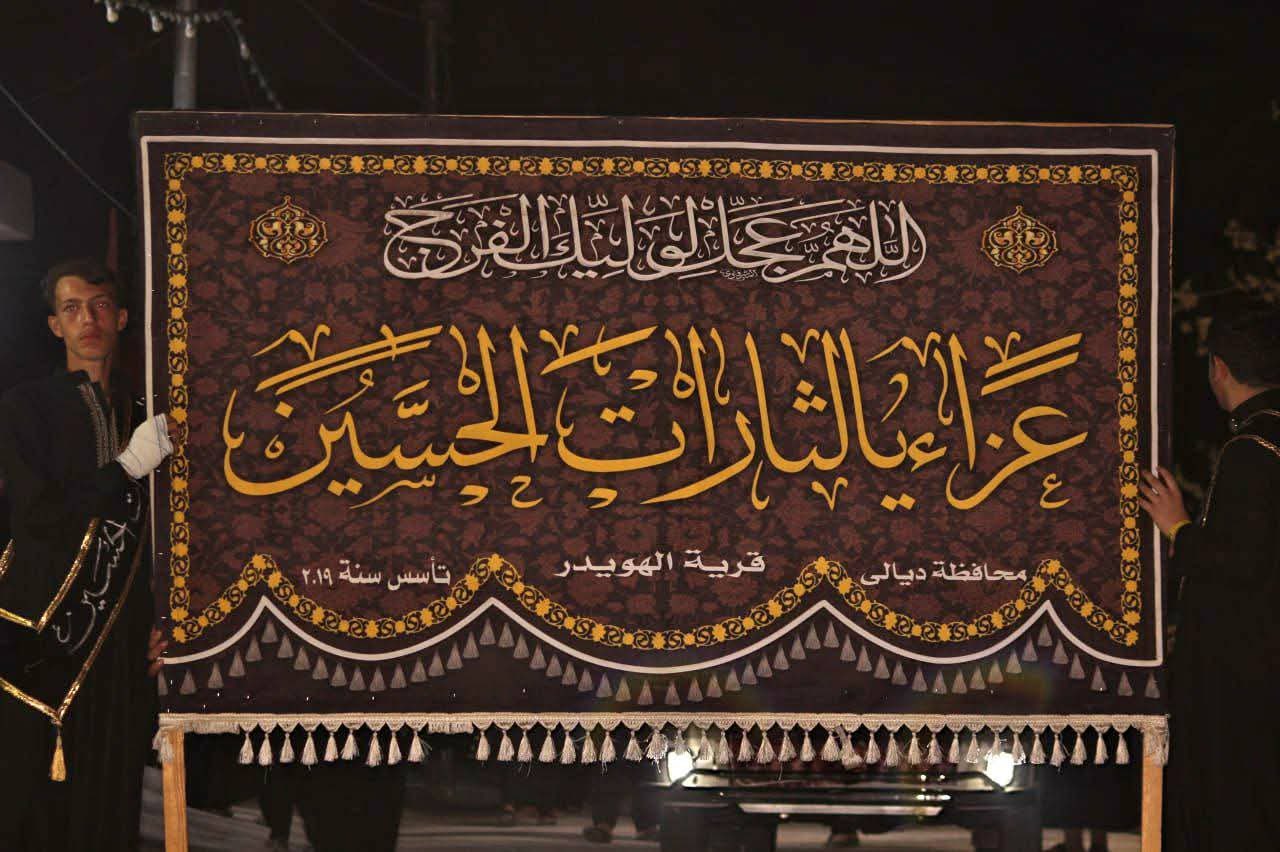 اللهم عجل لوليك الفرج
عزاء يالثارات الحسين
محافظة ديالى
قرية الهويدر
تأسس سنة ٢٠١٩
الحسين